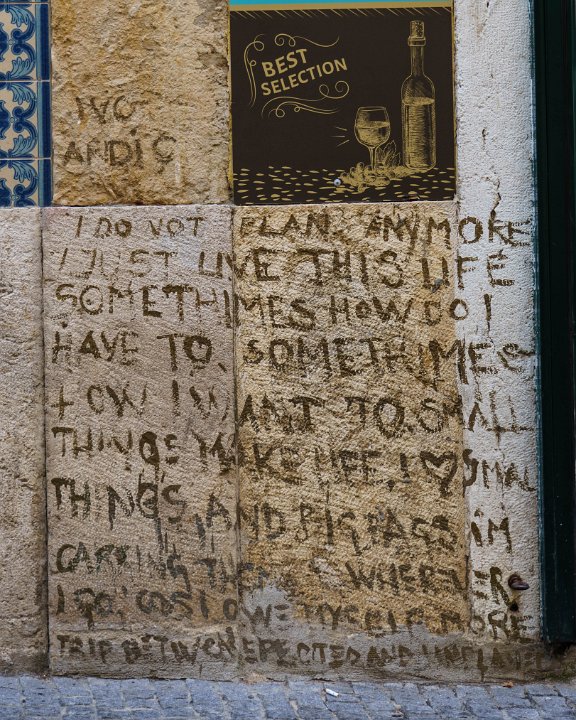 BEST
SELECTION
IVG
ANDIG
I DO NOT PLAN ANYMORE
I JUST LIVE THIS LIFE
SOMETHIMES HOW DO I
HAVE TO, SOMETHIMES
HOW I WANT TO. SMALL
THINGS MAKE LIFE. I ♥ SMALL
THINGS, AND BIG BAGS IM
CARRING THEM WHEREVER
I GO, COS I OWE MYSELF MORE
TRIP BETWEEN EPECITED AND UNPLANED